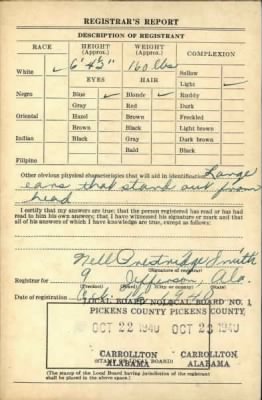 REGISTRAR'S REPORT
DESCRIPTION OF REGISTRANT
RACE HEIGHT (Approx.) WEIGHT (Approx.) COMPLEXION
White ✓ 160 lbs Sallow
EYES HAIR Light ✓
Negro Blue ✓ Blonde ✓ Ruddy
Gray Red Dark
Oriental Hazel Brown Freckled
Brown Black Light brown
Indian Black Gray Dark brown
Bald Black
Filipino
Other obvious physical characteristics that will aid in identification Large
ears that stand out from
head
I certify that my answers are true; that the person registered has read or has had
read to him his own answers; that I have witnessed his signature or mark and that
all of his answers of which I have knowledge are true, except as follows:
Nell Prestridge Smith
(Signature of registrar)
Registrar for 9 Jefferson, Ala.
Date of registration
LOCAL BOARD NO. LOCAL BOARD NO. 1
PICKENS COUNTY PICKENS COUNTY
OCT 22 1940 OCT 23 1940
CARROLLTON CARROLLTON
(STAMP OF LOCAL BOARD)
ALABAMA ALABAMA
(The stamp of the Local Board having jurisdiction of the registrant
shall be placed in the above space.)